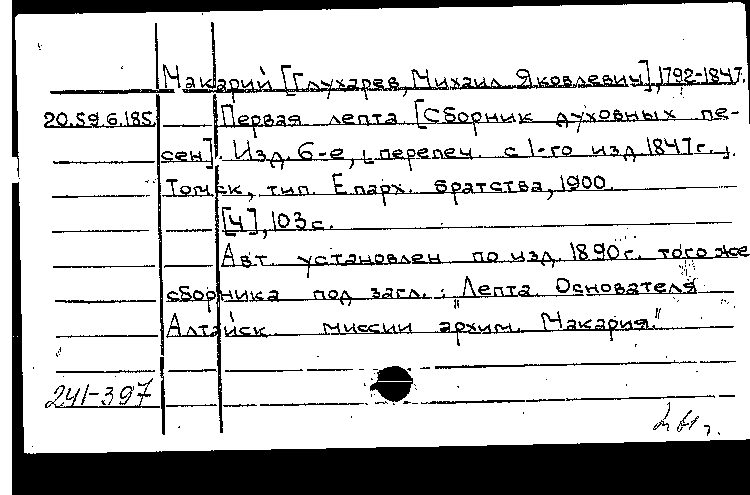 Макарий [Глухарев, Михаил Яковлевич], 1792-1847.
20.59.6.185. Первая лепта [Сборник духовных пе-
сен]. Изд. 6-е, [перепеч. с 1-го изд. 1847 г.].
Томск, тип. Епарх. братства, 1900.
[4], 103 с.
Авт. установлен по изд. 1890 г. того же
сборника под загл.: „Лепта Основателя
Алтайск. миссии архим. Макария."
241-397